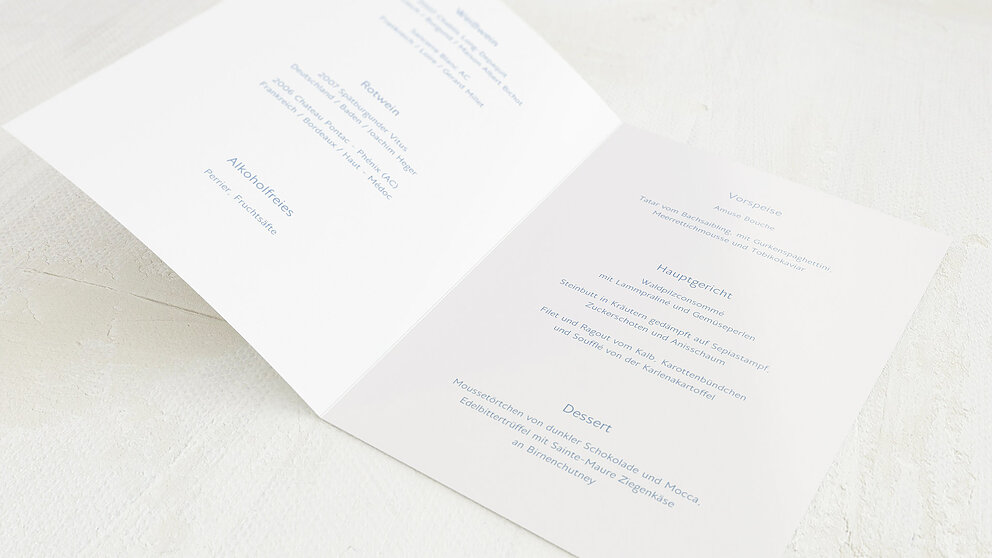 Weißwein
Sancerre Blanc AC
Frankreich / Loire / Gerard Millet
Rotwein
2007 Spätburgunder Vitus,
Deutschland / Baden / Joachim Heger
2006 Chateau Pontac - Phénix (AC)
Frankreich / Bordeaux / Haut - Médoc
Alkoholfreies
Perrier, Fruchtsäfte
Vorspeise
Amuse Bouche
Tatar vom Bachsaibling, mit Gurkenspaghettini,
Meerrettichmousse und Tobikokaviar
Hauptgericht
Waldpilzconsommé
mit Lammpraliné und Gemüseperlen
Steinbutt in Kräutern gedämpft auf Sepiastampf,
Zuckerschoten und Anisschaum
Filet und Ragout vom Kalb, Karottenbündchen
und Soufflé von der Karlenakartoffel
Dessert
Moussetörtchen von dunkler Schokolade und Mocca,
Edelbittertrüffel mit Sainte-Maure Ziegenkäse
an Birnenchutney